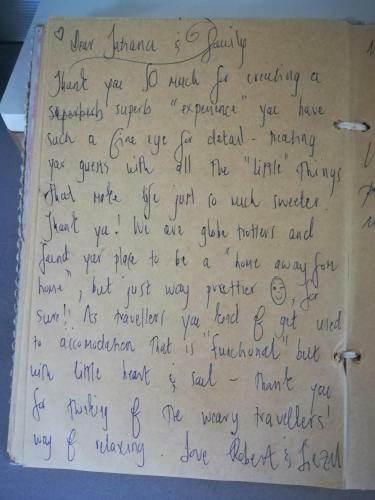 ♡ Dear Tatiana & family
Thank you SO much for creating a
superb superb "experience" you have
such a fine eye for detail - treating
your guests with all the "little" things
that make life just so much sweeter.
Thank you! We are globe trotters and
found your place to be a "home away from
home", but just way prettier ☺, for
sure!! As travellers you kind of get used
to accomodation that is "functional" but
with little heart & soul - Thank you
for thinking of the weary travellers'
way of relaxing. Love Robert & Liezel